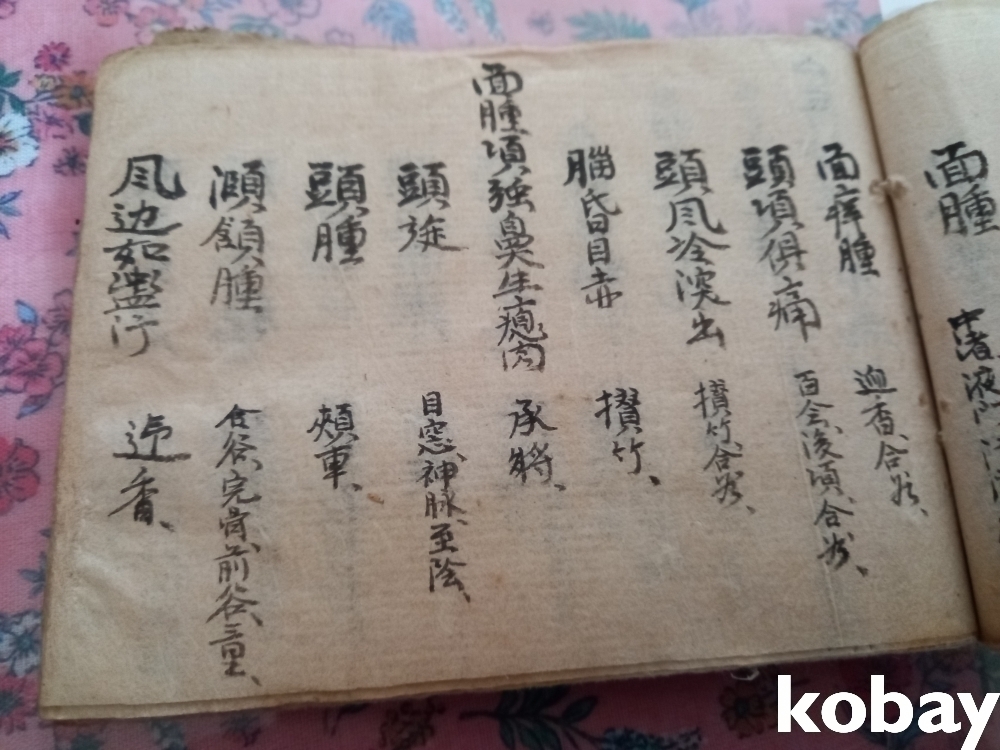 面腫 中渚 液門
面痒腫 迎香、合谷、
頭項俱痛 百会、後頂、合谷、
頭風冷淚出 攅竹、合谷、
腦昏目赤 攅竹、
面腫項强鼻生瘜肉 承將、
頭旋 目窓、神脉、至陰、
頭腫 頰車、
頷腫 合谷、完骨、前谷、三里、
風边如 迎香、
kobay